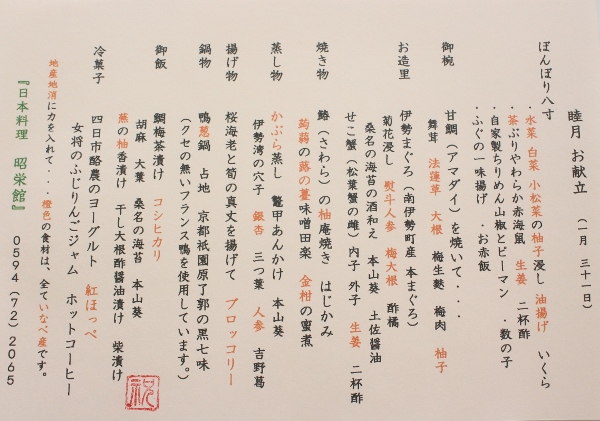 睦月 お献立 (一月 三十一日)
ぼんぼり八寸
・水菜 白菜 小松菜の柚子浸し 油揚げ いくら
・茶ぶりやわらか赤海鼠 生姜 二杯酢
・自家製ちりめん山椒とピーマン ・数の子
・ふぐの一味揚げ ・お赤飯
御椀 甘鯛(アマダイ)を焼いて・・・
舞茸 法蓮草 大根 梅生麩 梅肉 柚子
お造里 伊勢まぐろ(南伊勢町産 本まぐろ)
菊花浸し 熨斗人参 梅大根 酢橘
桑名の海苔の酒和え 本山葵 土佐醤油
せこ蟹(松葉蟹の雌) 内子 外子 生姜 二杯酢
焼き物 鰆(さわら)の柚庵焼き はじかみ
蒟蒻の蕗の薹味噌田楽 金柑の蜜煮
蒸し物 かぶら蒸し 鼈甲あんかけ 本山葵
伊勢湾の穴子 銀杏 三つ葉 人参 吉野葛
揚げ物 桜海老と筍の真丈を揚げて ブロッコリー
鍋物 鴨葱鍋 占地 京都祇園原了郭の黒七味
(クセの無いフランス鴨を使用しています。)
御飯 鯛梅茶漬け コシヒカリ
胡麻 大葉 桑名の海苔 本山葵
蕪の柚香漬け 干し大根酢醤油漬け 柴漬け
冷菓子 四日市酪農のヨーグルト 紅ほっぺ
女将のふじりんごジャム ホットコーヒー
地産地消に力を入れて・・・橙色の食材は、全ていなべ産です。
『日本料理 昭栄館』 0594(72)2065